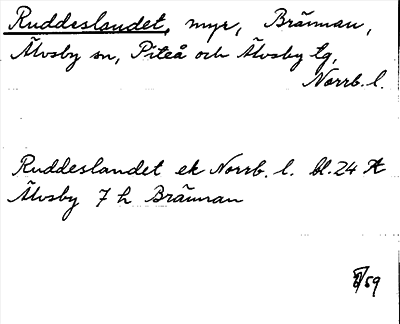 Ruddeslandet, myr, Brännan,
Älvsby sn, Piteå och Älvsby tg,
Norrb. l.
Ruddeslandet ek Norrb. l. bl. 24
Älvsby 7 h Brännan
/59